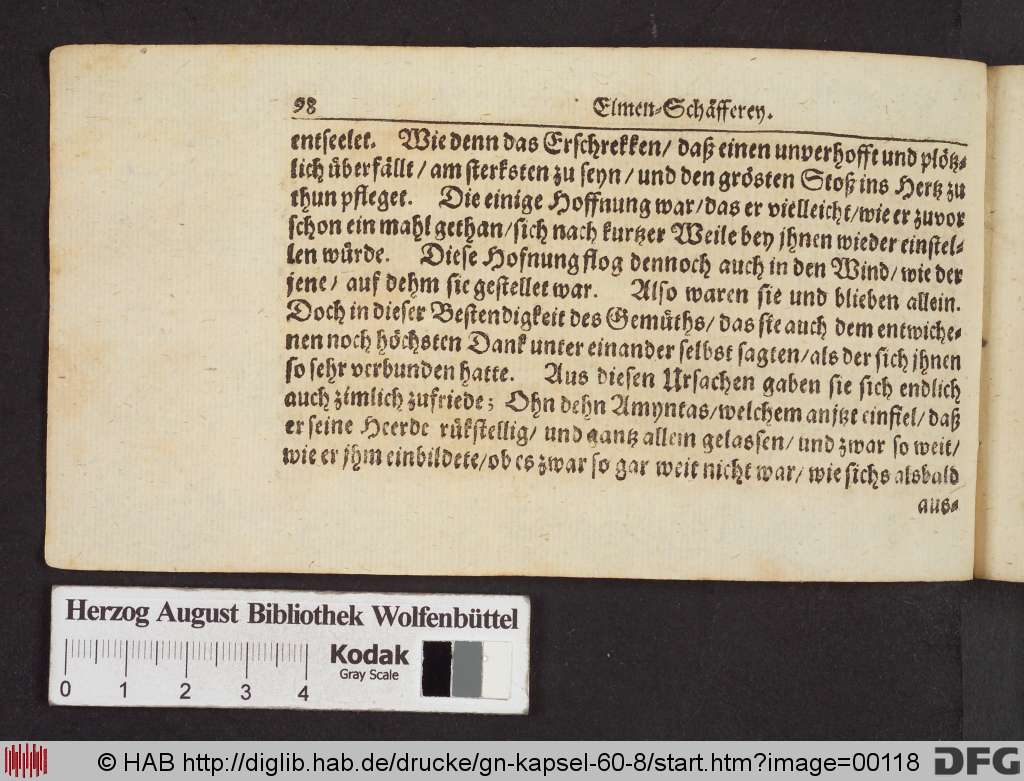 98 Elmen-Schäfferey.
entseelet. Wie denn das Erschrekken/ daß einen unverhofft und plötz-
lich überfällt/ am sterksten zu seyn/ und den grösten Stoß ins Hertz zu
thun pfleget. Die einige Hoffnung war/ das er vielleicht/ wie er zuvor
schon ein mahl gethan/ sich nach kurtzer Weile bey jhnen wieder einstel-
len würde. Diese Hofnung flog dennoch auch in den Wind/ wie der
jene/ auf dehm sie gestellet war. Also waren sie und blieben allein.
Doch in dieser Bestendigkeit des Gemüths/ das sie auch dem entwiche-
nen noch höchsten Dank unter einander selbst sagten/ als der sich jhnen
so sehr verbunden hatte. Aus diesen Ursachen gaben sie sich endlich
auch zimlich zufriede; Ohn dehn Amyntas/ welchem anjtzt einfiel/ daß
er seine Heerde rükstellig/ und gantz allein gelassen/ und zwar so weit/
wie er jhm einbildete/ ob es zwar so gar weit nicht war/ wie sichs alsbald
aus-
Herzog August Bibliothek Wolfenbüttel
0 1 2 3 4
Kodak
Gray Scale
© HAB http://diglib.hab.de/drucke/gn-kapsel-60-8/start.htm?image=00118
DFG